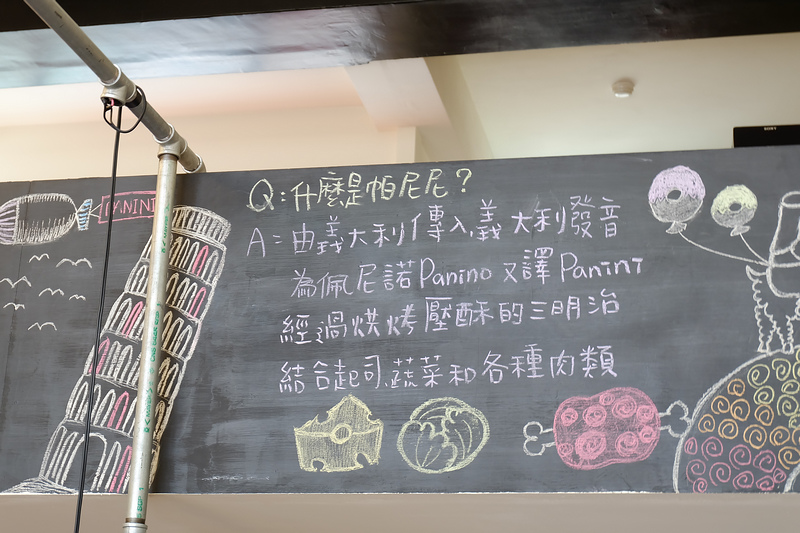 PANINI
Q:什麼是帕尼尼?
A:由義大利傳入,義大利發音
為佩尼諾Panino又譯Panini
經過烘烤壓酥的三明治
結合起司,蔬菜和各種肉類
SONY